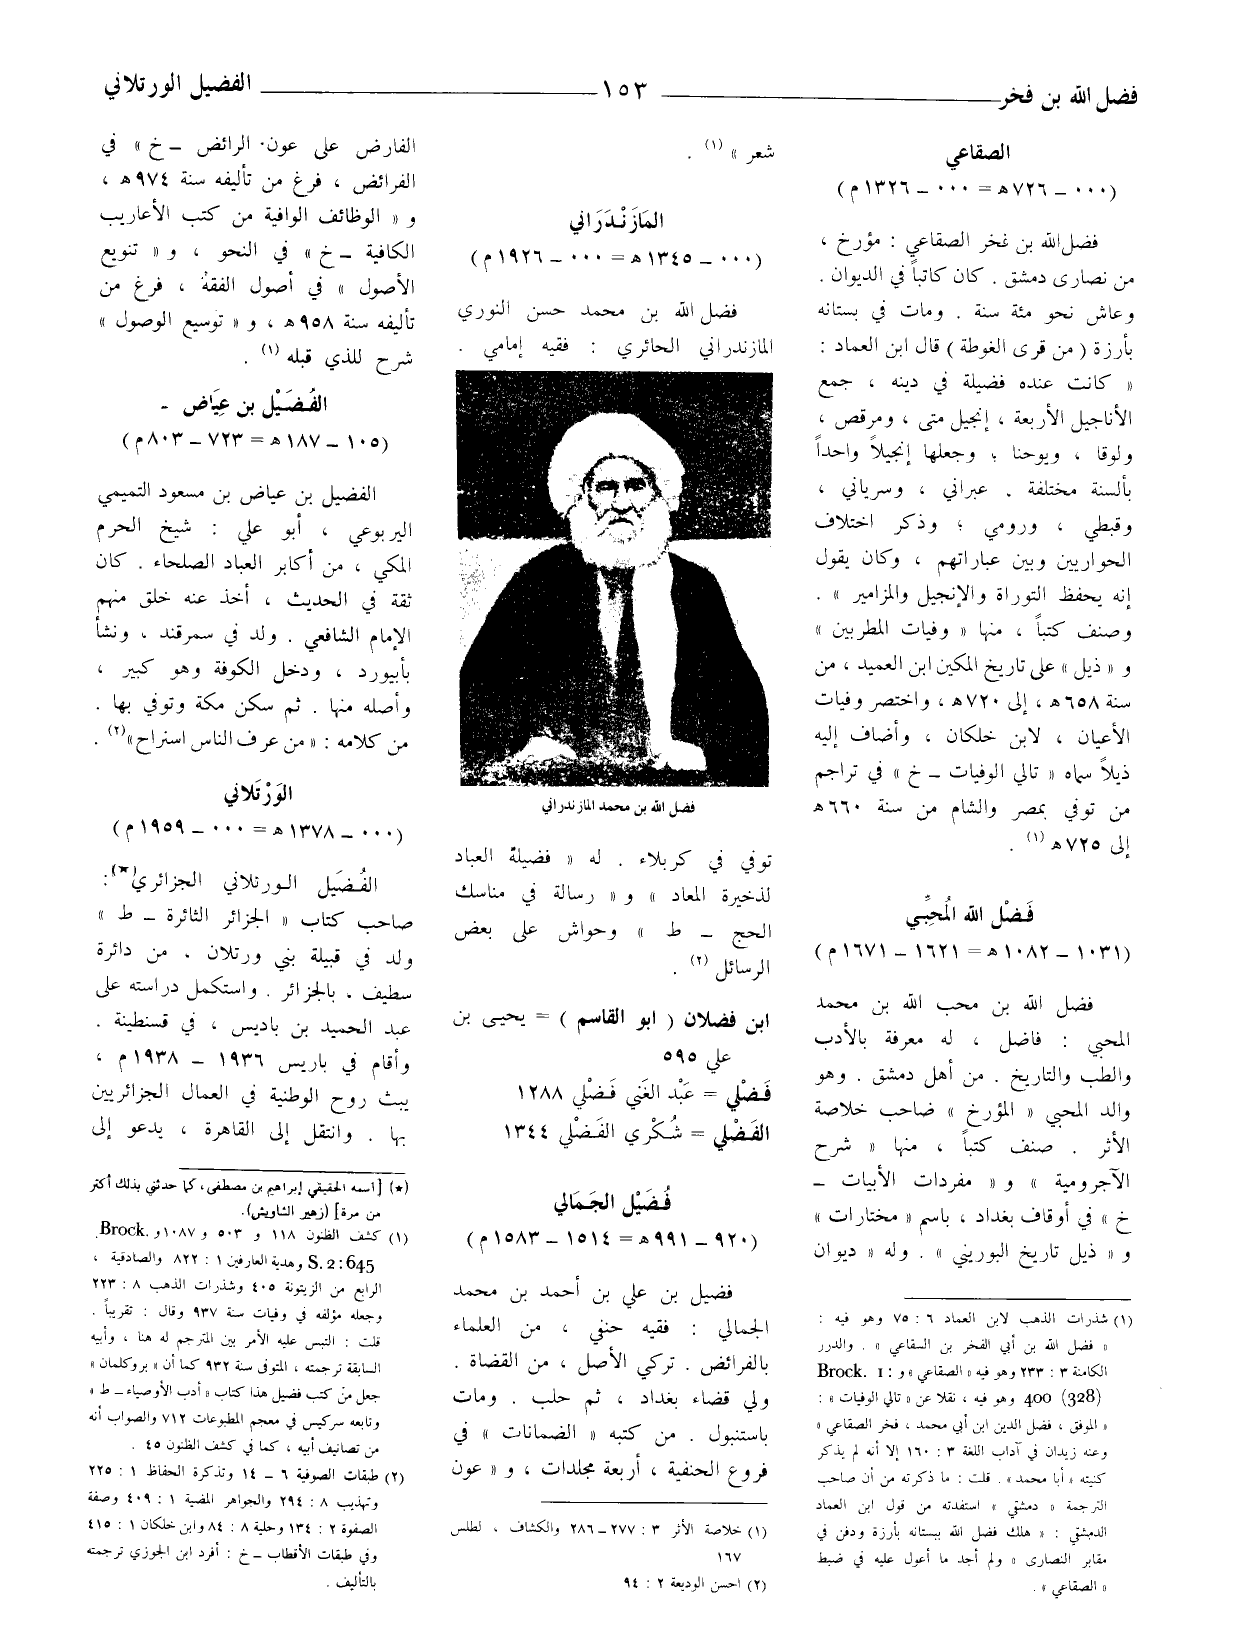 فضل الله بن فخر
١٥٣
الفضيل الورتلاني
الصقاعي
(٠٠٠ ــ ٧٢٦ﻫ = ٠٠٠ ــ ١٣٢٦ م)
فضل الله بن فخر الصقاعي : مؤرخ ،
من نصارى دمشق . كان كاتباً في الديوان .
وعاش نحو مئة سنة . ومات في بستانه
بأرزة ( من قرى الغوطة ) قال ابن العماد :
« كانت عنده فضيلة في دينه ، جمع
الأناجيل الأربعة ، إنجيل متى ، ومرقص ،
ولوقا ، ويوحنا ؛ وجعلها إنجيلاً واحداً
بألسنة مختلفة . عبراني ، وسرياني ،
وقبطي ، ورومي ؛ وذكر اختلاف
الحواريين وبين عباراتهم ، وكان يقول
إنه يحفظ التوراة والإنجيل والمزامير » .
وصنف كتباً ، منها « وفيات المطربين »
و « ذيل » على تاريخ المكين ابن العميد ، من
سنة ٦٥٨ﻫ ، إلى ٧٢٠ﻫ ، واختصر وفيات
الأعيان ، لابن خلكان ، وأضاف إليه
ذيلاً سماه « تالي الوفيات ــ خ » في تراجم
من توفي بمصر والشام من سنة ٦٦٠ﻫ
إلى ٧٢٥ﻫ (١) .
فَضْل الله المُحِبِّي
(١٠٣١ ــ ١٠٨٢ ﻫ = ١٦٢١ ــ ١٦٧١ م)
فضل الله بن محب الله بن محمد
المحبي : فاضل ، له معرفة بالأدب
والطب والتاريخ . من أهل دمشق . وهو
والد المحبي « المؤرخ » صاحب خلاصة
الأثر . صنف كتباً ، منها « شرح
الآجرومية » و « مفردات الأبيات ــ
خ » في أوقاف بغداد ، باسم « مختارات »
و « ذيل تاريخ البوريني » . وله « ديوان
(١) شذرات الذهب لابن العماد ٦ : ٧٥ وهو فيه :
« فضل الله بن أبي الفخر بن السقاعي » . والدرر
الكامنة ٣ : ٢٣٣ وهو فيه « الصقاعي » و Brock. 1:
400 (328) وهو فيه ، نقلا عن « تالي الوفيات » :
« الموفق ، فضل الدين ابن أبي محمد ، فخر الصقاعي »
وعنه زيدان في آداب اللغة ٣ : ١٦٠ إلا أنه لم يذكر
كنيته « أبا محمد » . قلت : ما ذكرته من أن صاحب
الترجمة « دمشقي » استفدته من قول ابن العماد
الدمشقي : « هلك فضل الله ببستانه بأرزة ودفن في
مقابر النصارى » ولم أجد ما أعول عليه في ضبط
« الصقاعي » .
شعر » (١) .
المَازَنْدَرَاني
(٠٠٠ ــ ١٣٤٥ ﻫ = ٠٠٠ ــ ١٩٢٦ م)
فضل الله بن محمد حسن النوري
المازندراني الحائري : فقيه إمامي .
فضل الله بن محمد المازندراني
توفي في كربلاء . له « فضيلة العباد
لذخيرة المعاد » و « رسالة في مناسك
الحج ــ ط » وحواش على بعض
الرسائل (٢) .
ابن فضلان ( ابو القاسم ) = يحيى بن
علي ٥٩٥
فَضْلي = عَبْد الغَني فَضْلي ١٢٨٨
الفَضْلي = شُكْري الفَضْلي ١٣٤٤
فُضَيْل الجَمَالي
(٩٢٠ ــ ٩٩١ ﻫ = ١٥١٤ ــ ١٥٨٣ م)
فضيل بن علي بن أحمد بن محمد
الجمالي : فقيه حنفي ، من العلماء
بالفرائض . تركي الأصل ، من القضاة .
ولي قضاء بغداد ، ثم حلب . ومات
باستنبول . من كتبه « الضمانات » في
فروع الحنفية ، أربعة مجلدات ، و « عون
(١) خلاصة الأثر ٣ : ٢٧٧ ــ ٢٨٦ والكشاف ، لطلس
١٦٧
(٢) احسن الوديعة ٢ : ٩٤
الفارض على عون الرائض ــ خ » في
الفرائض ، فرغ من تأليفه سنة ٩٧٤ ﻫ ،
و « الوظائف الوافية من كتب الأعاريب
الكافية ــ خ » في النحو ، و « تنويع
الأصول » في أصول الفقه ، فرغ من
تأليفه سنة ٩٥٨ ﻫ ، و « توسيع الوصول »
شرح للذي قبله (١) .
الفُضَيْل بن عِيَاض -
(١٠٥ ــ ١٨٧ ﻫ = ٧٢٣ ــ ٨٠٣ م)
الفضيل بن عياض بن مسعود التميمي
اليربوعي ، أبو علي : شيخ الحرم
المكي ، من أكابر العباد الصلحاء . كان
ثقة في الحديث ، أخذ عنه خلق منهم
الإمام الشافعي . ولد في سمرقند ، ونشأ
بأبيورد ، ودخل الكوفة وهو كبير ،
وأصله منها . ثم سكن مكة وتوفي بها .
من كلامه : « من عرف الناس استراح » (٢) .
الوَرْتَلاني
(٠٠٠ ــ ١٣٧٨ ﻫ = ٠٠٠ ــ ١٩٥٩ م)
الفُضَيَل الورتلاني الجزائري (★):
صاحب كتاب « الجزائر الثائرة ــ ط »
ولد في قبيلة بني ورتلان . من دائرة
سطيف ، بالجزائر . واستكمل دراسته على
عبد الحميد بن باديس ، في قسنطينة .
وأقام في باريس ١٩٣٦ ــ ١٩٣٨ م ،
يبث روح الوطنية في العمال الجزائريين
بها . وانتقل إلى القاهرة ، يدعو إلى
(★) [اسمه الحقيقي إبراهيم بن مصطفى، كما حدثني بذلك أكثر
من مرة] (زهير الشاويش).
(١) كشف الظنون ١١٨ و ٥٠٣ و ١٠٨٧ و Brock.
S. 2:645 وهدية العارفين ١ : ٨٢٢ والصادقية ،
الرابع من الزيتونة ٤٠٥ وشذرات الذهب ٨ : ٢٢٣
وجعله مؤلفه في وفيات سنة ٩٣٧ وقال : تقريباً .
قلت : التبس عليه الأمر بين المترجم له هنا ، وأبيه
السابقة ترجمته ، المتوفى سنة ٩٣٢ كما أن « بروكلمان »
جعل من كتب فضيل هذا كتاب « أدب الأوصياء ــ ط »
وتابعه سركيس في معجم المطبوعات ٧١٢ والصواب أنه
من تصانيف أبيه ، كما في كشف الظنون ٤٥ .
(٢) طبقات الصوفية ٦ ــ ١٤ وتذكرة الحفاظ ١ : ٢٢٥
وتهذيب ٨ : ٢٩٤ والجواهر المضية ١ : ٤٠٩ وصفة
الصفوة ٢ : ١٣٤ وحلية ٨ : ٨٤ وابن خلكان ١ : ٤١٥
وفي طبقات الأقطاب ــ خ : أفرد ابن الجوزي ترجمته
بالتأليف .